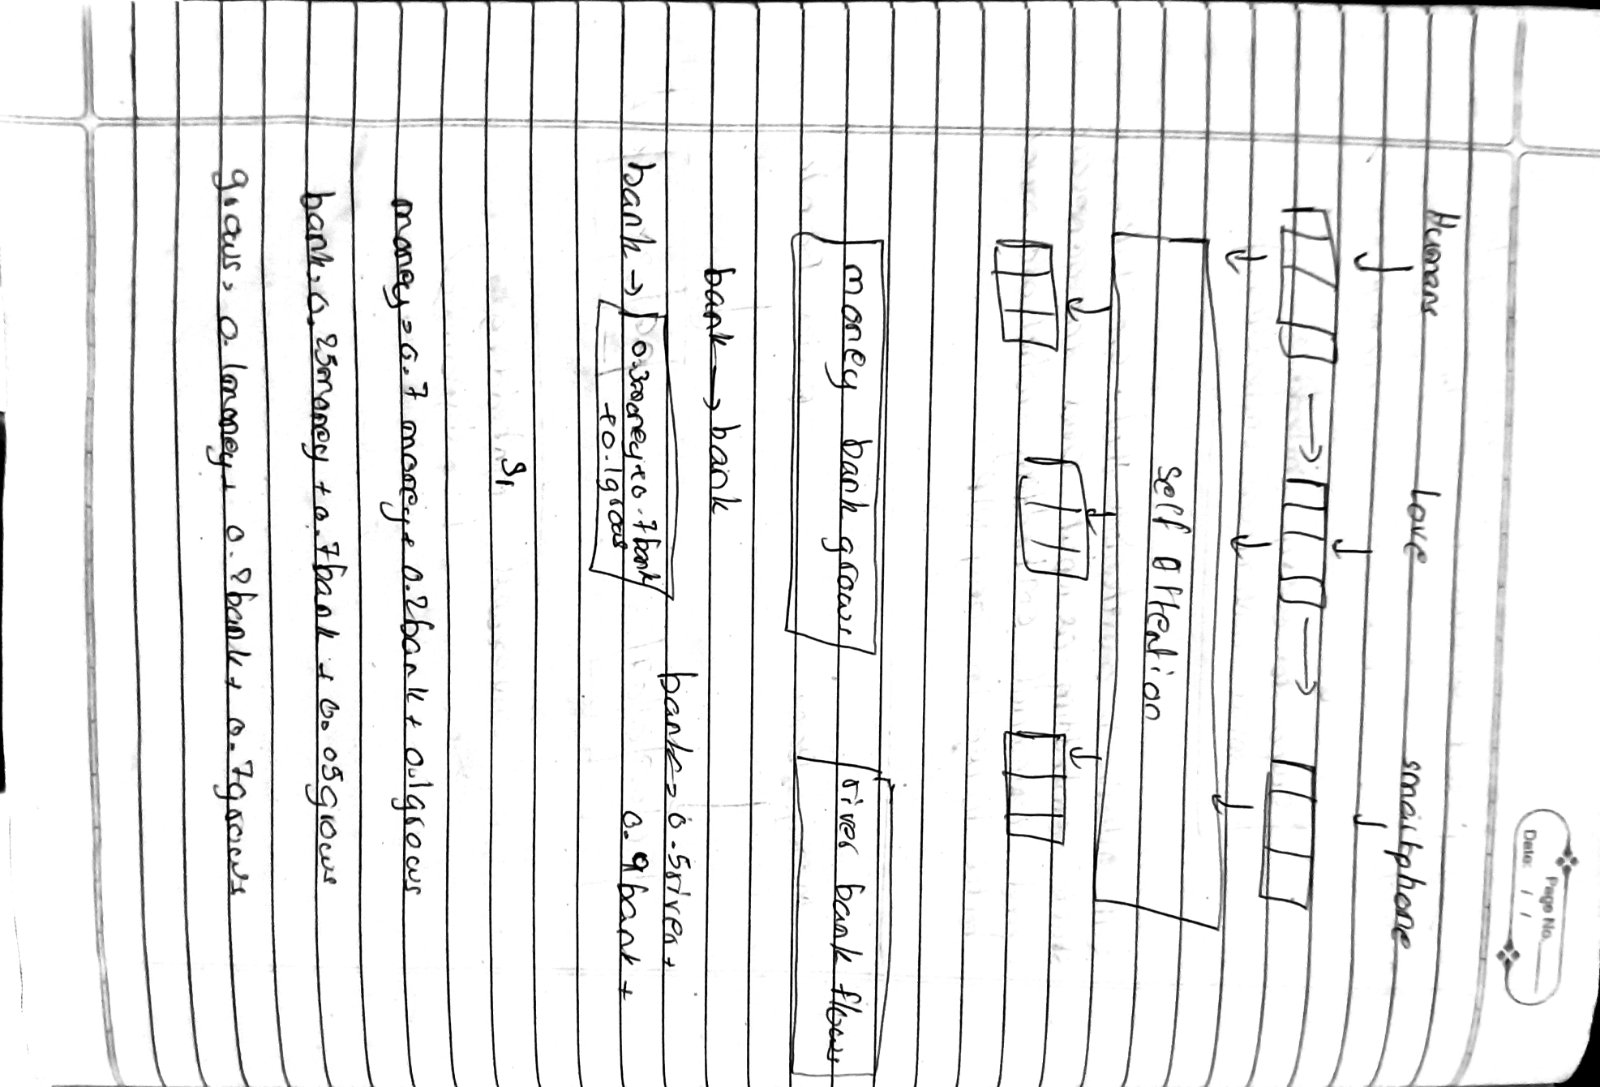 Page No.
Date: / /
Humans love smartphone
self Attention
money bank grows
river bank flows
bank → bank
bank = 0.5river +
bank → 0.3money + 0.7bank
+ 0.1grows
0.9bank +
money = 0.7 money + 0.2bank + 0.1grows
bank = 0.25money + 0.7bank + 0.05grows
grows = 0.1money + 0.2bank + 0.7grows